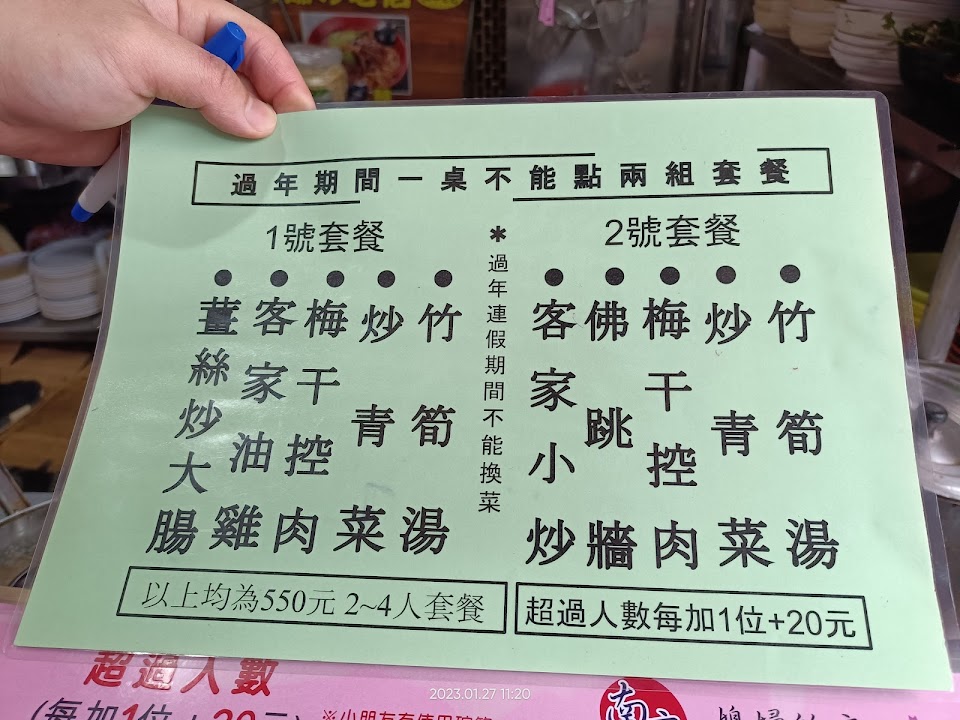 過年期間一桌不能點兩組套餐
1號套餐
薑絲炒大腸
客家油雞
梅干控肉
炒青菜
竹筍湯
*過年連假期間不能換菜
2號套餐
客家小炒
佛跳牆
梅干控肉
炒青菜
竹筍湯
以上均為550元 2~4人套餐
超過人數每加1位+20元
超過人數
(每加1位+20元)
2023.01.27 11:20